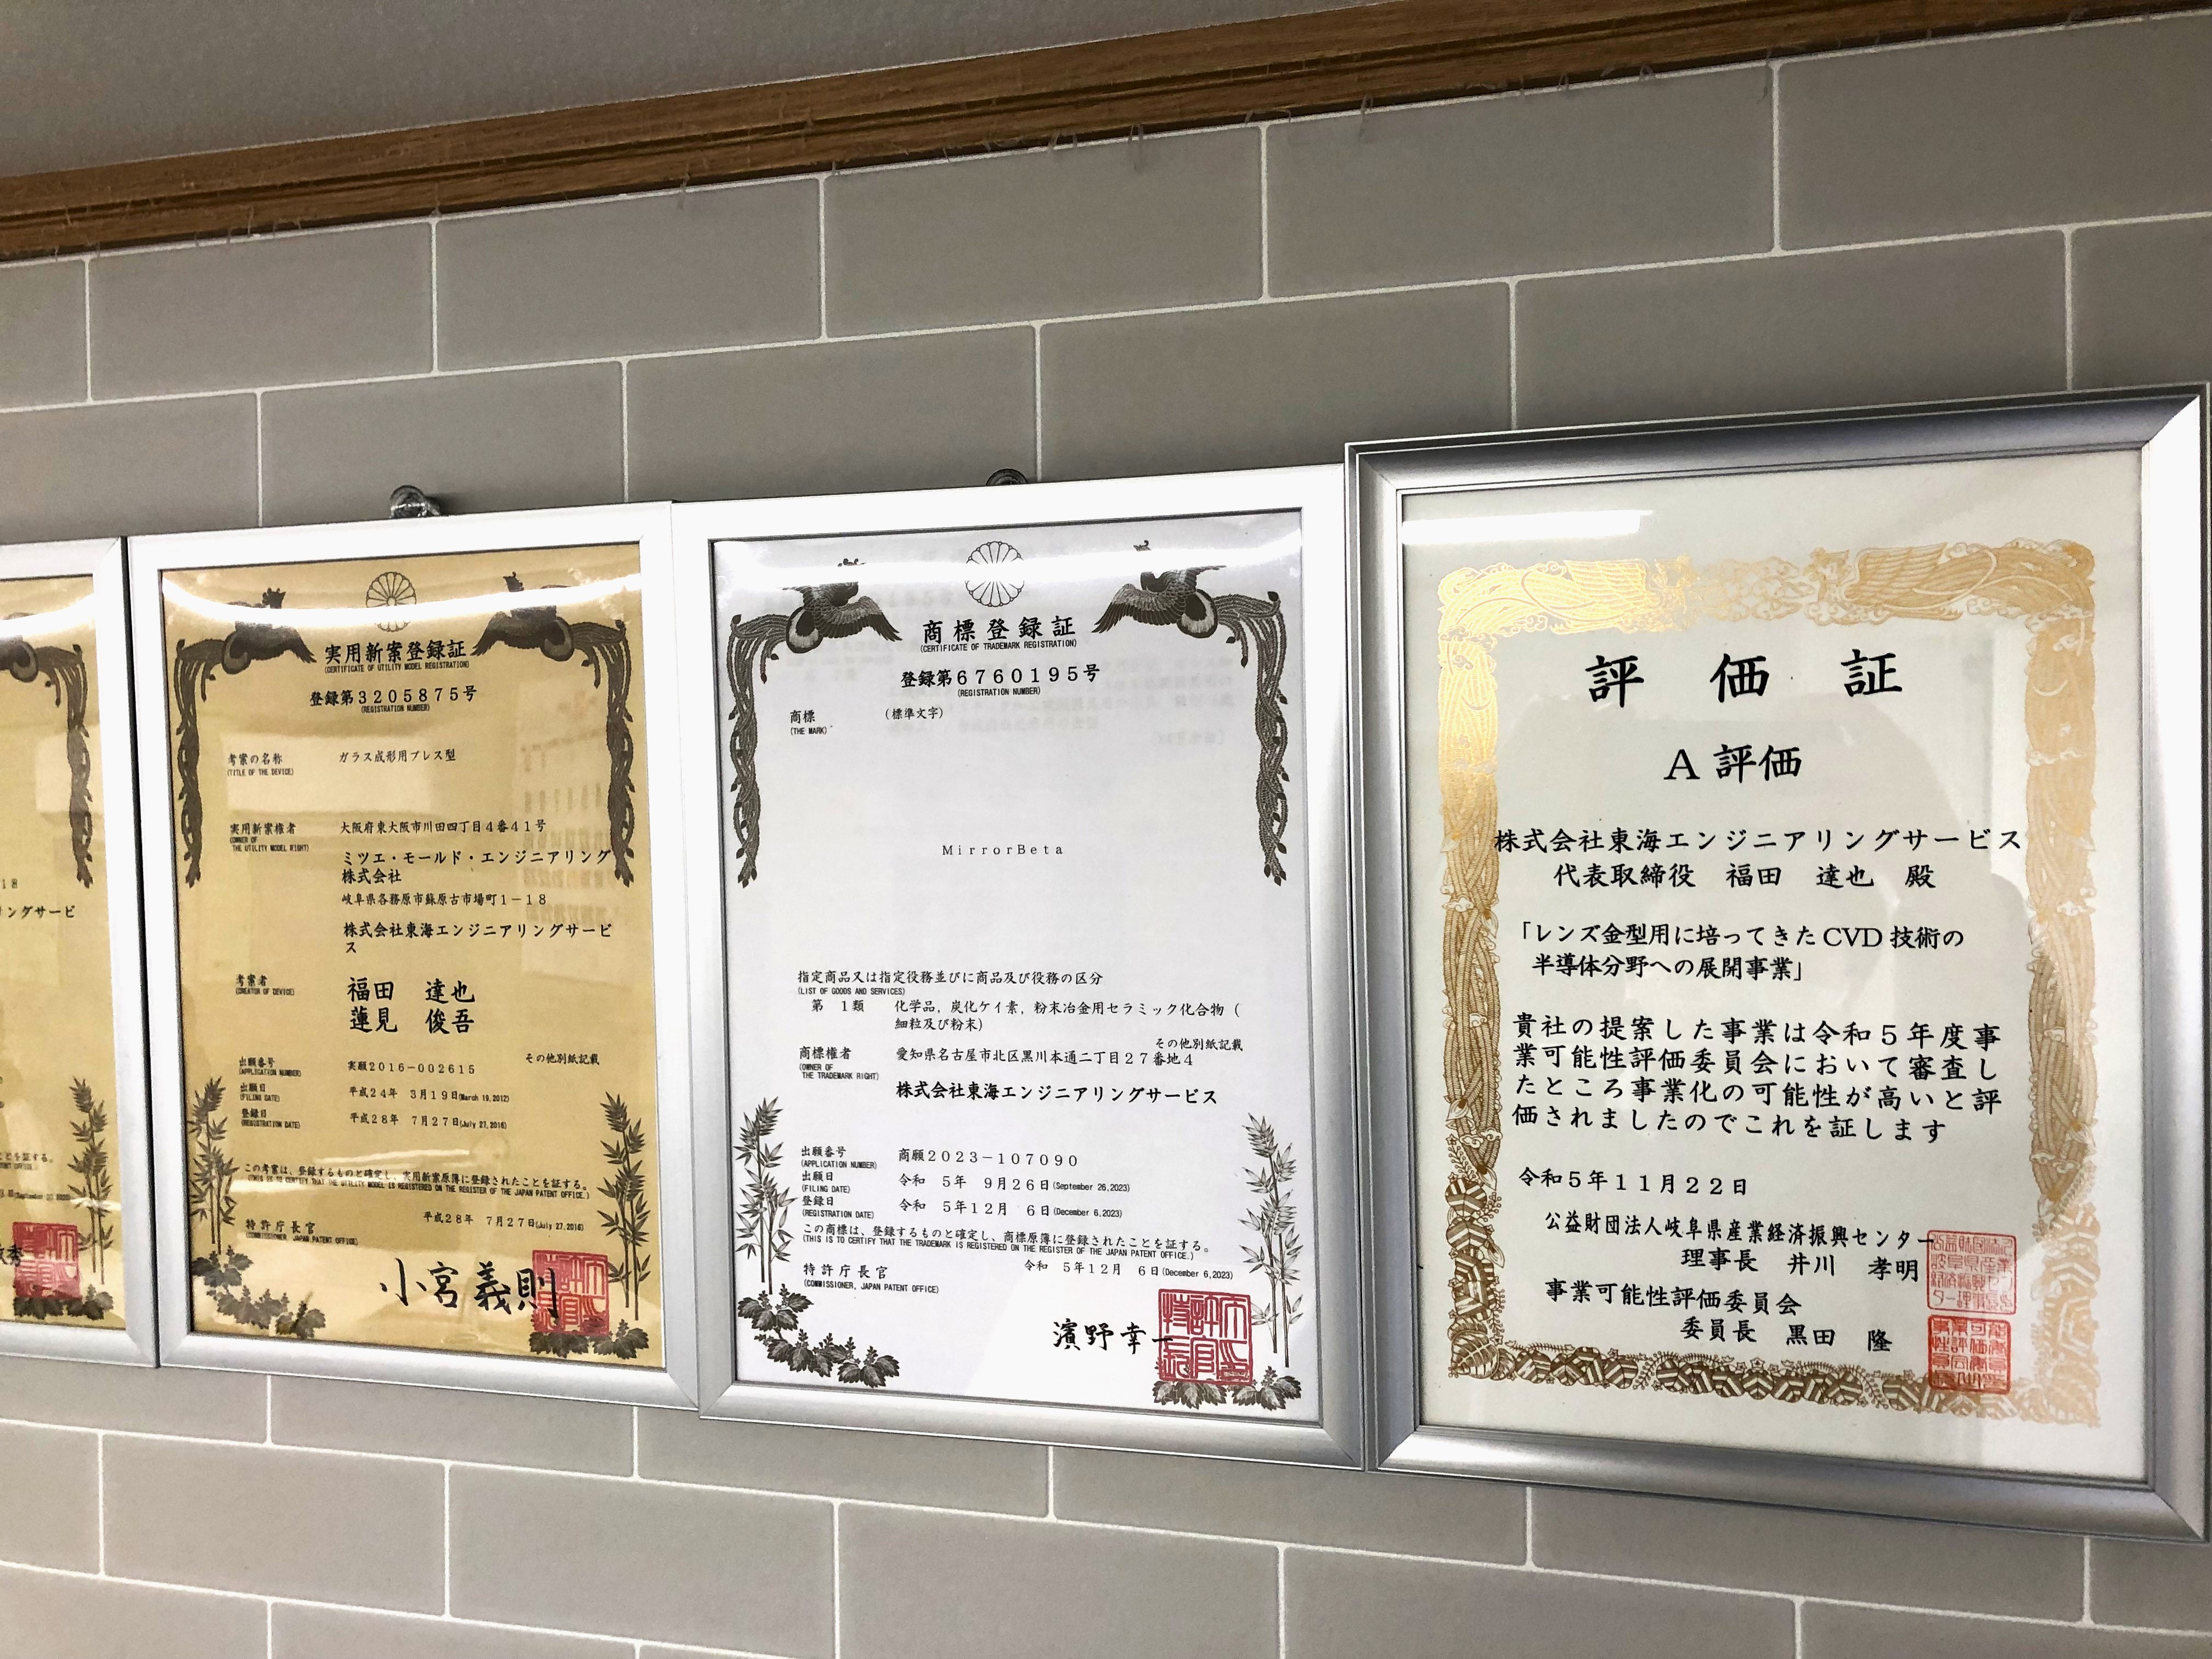 18
リングサービ
実用新案登録証
(CERTIFICATE OF UTILITY MODEL REGISTRATION)
登録第3205875号
(REGISTRATION NUMBER)
考案の名称
(TITLE OF THE DEVICE)
ガラス成形用プレス型
実用新案権者
(OWNER OF
THE UTILITY MODEL RIGHT)
大阪府東大阪市川田四丁目4番41号
ミツエ・モールド・エンジニアリング
株式会社
岐阜県各務原市蘇原古市場町1-18
株式会社東海エンジニアリングサービ
ス
考案者
(CREATOR OF DEVICE)
福田 達也
蓮見 俊吾
その他別紙記載
出願番号
(APPLICATION NUMBER)
実願2016-002615
出願日
(FILING DATE)
平成24年 3月19日(March 19,2012)
登録日
(REGISTRATION DATE)
平成28年 7月27日(July 27,2016)
この考案は、登録するものと確定し、実用新案原簿に登録されたことを証する。
(THIS IS TO CERTIFY THAT THE UTILITY MODEL IS REGISTERED ON THE REGISTER OF THE JAPAN PATENT OFFICE.)
平成28年 7月27日(July 27,2016)
特許庁長官
(COMMISSIONER, JAPAN PATENT OFFICE)
小宮義則
商標登録証
(CERTIFICATE OF TRADEMARK REGISTRATION)
登録第6760195号
(REGISTRATION NUMBER)
商標
(THE MARK)
(標準文字)
MirrorBeta
指定商品又は指定役務並びに商品及び役務の区分
(LIST OF GOODS AND SERVICES)
第 1類 化学品,炭化ケイ素,粉末冶金用セラミック化合物(
細粒及び粉末)
その他別紙記載
商標権者
(OWNER OF
THE TRADEMARK RIGHT)
愛知県名古屋市北区黒川本通二丁目27番地4
株式会社東海エンジニアリングサービス
出願番号
(APPLICATION NUMBER)
商願2023-107090
出願日
(FILING DATE)
令和 5年 9月26日(September 26,2023)
登録日
(REGISTRATION DATE)
令和 5年12月 6日(December 6,2023)
この商標は、登録するものと確定し、商標原簿に登録されたことを証する。
(THIS IS TO CERTIFY THAT THE TRADEMARK IS REGISTERED ON THE REGISTER OF THE JAPAN PATENT OFFICE.)
令和 5年12月 6日(December 6,2023)
特許庁長官
(COMMISSIONER, JAPAN PATENT OFFICE)
濱野幸一
評価証
A評価
株式会社東海エンジニアリングサービス
代表取締役 福田 達也 殿
「レンズ金型用に培ってきたCVD技術の
半導体分野への展開事業」
貴社の提案した事業は令和5年度事
業可能性評価委員会において審査し
たところ事業化の可能性が高いと評
価されましたのでこれを証します
令和5年11月22日
公益財団法人岐阜県産業経済振興センター
理事長 井川 孝明
事業可能性評価委員会
委員長 黒田 隆